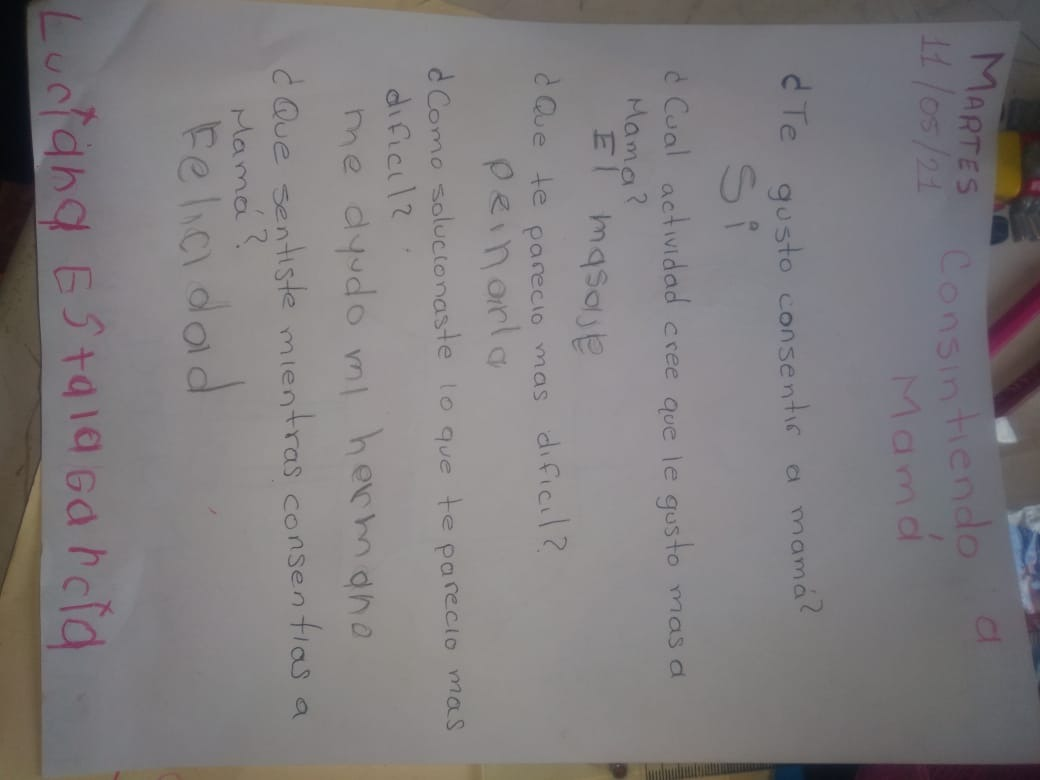 MARTES Consintiendo a
11/05/21 Mamá
¿Te gusto consentir a mamá?
Si
¿Cual actividad cree que le gusto mas a
Mama?
El masaje
¿Que te parecio mas dificil?
peinarla
¿Como solucionaste lo que te parecio mas
dificil?
me ayudo mi hermano
¿Que sentiste mientras consentias a
Mamá?
Felicidad
Luciana Estala García